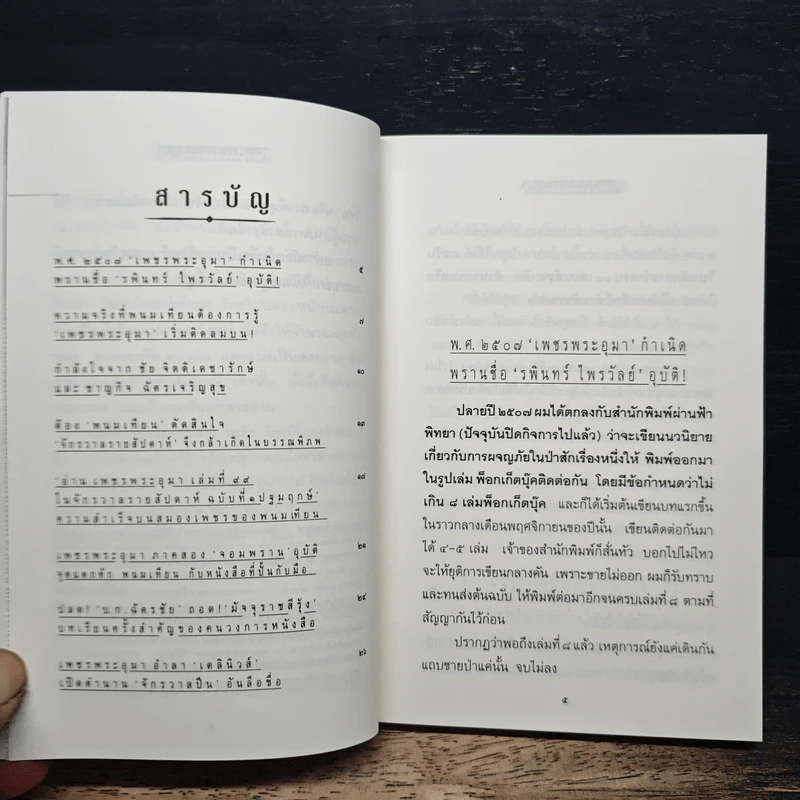 สารบัญ
พ.ศ. ๒๕๐๗ ‘เพชรพระอุมา’ กำเนิด ๕
พรานชื่อ ‘รพินทร์ ไพรวัลย์’ อุบัติ!
ความจริงที่พนมเทียนต้องการรู้ ๗
‘เพชรพระอุมา’ เริ่มติดลมบน!
กำลังใจจาก ชัย จิตติเดชารักษ์ ๑๐
และ ชาญกิจ ฉัตรเจริญสุข
ต้อง ‘พนมเทียน’ ตัดสินใจ ๑๓
‘จักรวาลรายสัปดาห์’ จึงกล้าเกิดในบรรณพิภพ
‘อ่าน เพชรพระอุมา เล่มที่ ๙๙ ๑๗
ในจักรวาลรายสัปดาห์ ฉบับที่ ๑ ปฐมฤกษ์’
ความสำเร็จบนสมองเพชรของพนมเทียน
เพชรพระอุมา ภาคสอง ‘จอมพราน’ อุบัติ ๒๑
จุดแตกหัก พนมเทียน กับหนังสือที่ปั้นกับมือ
ปลด! ‘บ.ก. ฉัตรชัย’ ถอด! ‘มัจจุราชสีรุ้ง’ ๒๔
บทเรียนครั้งสำคัญของคนวงการหนังสือ
เพชรพระอุมา อำลา ‘เดลินิวส์’ ๒๖
เปิดตำนาน ‘จักรวาลปืน’ อันลือชื่อ
พ.ศ. ๒๕๐๗ ‘เพชรพระอุมา’ กำเนิด
พรานชื่อ ‘รพินทร์ ไพรวัลย์’ อุบัติ!
ปลายปี ๒๕๐๗ ผมได้ตกลงกับสำนักพิมพ์ผ่านฟ้า
พิทยา (ปัจจุบันปิดกิจการไปแล้ว) ว่าจะเขียนนวนิยาย
เกี่ยวกับการผจญภัยในป่าสักเรื่องหนึ่งให้ พิมพ์ออกมา
ในรูปเล่ม พ็อกเก็ตบุ๊คติดต่อกัน โดยมีข้อกำหนดว่าไม่
เกิน ๘ เล่มพ็อกเก็ตบุ๊ค และก็ได้เริ่มต้นเขียนบทแรกขึ้น
ในราวกลางเดือนพฤศจิกายนของปีนั้น เขียนติดต่อกันมา
ได้ ๔-๕ เล่ม เจ้าของสำนักพิมพ์ก็สั่นหัว บอกไปไม่ไหว
จะให้ยุติการเขียนกลางคัน เพราะขายไม่ออก ผมก็รับทราบ
และทนส่งต้นฉบับ ให้พิมพ์ต่อมาอีกจนครบเล่มที่ ๘ ตามที่
สัญญากันไว้ก่อน
ปรากฏว่าพอถึงเล่มที่ ๘ แล้ว เหตุการณ์ยังแค่เดินกัน
แถบชายป่าแค่นั้น จบไม่ลง
๕